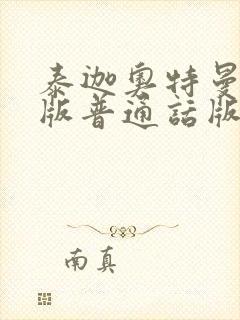 泰迦奥特曼
版普通話版
南真